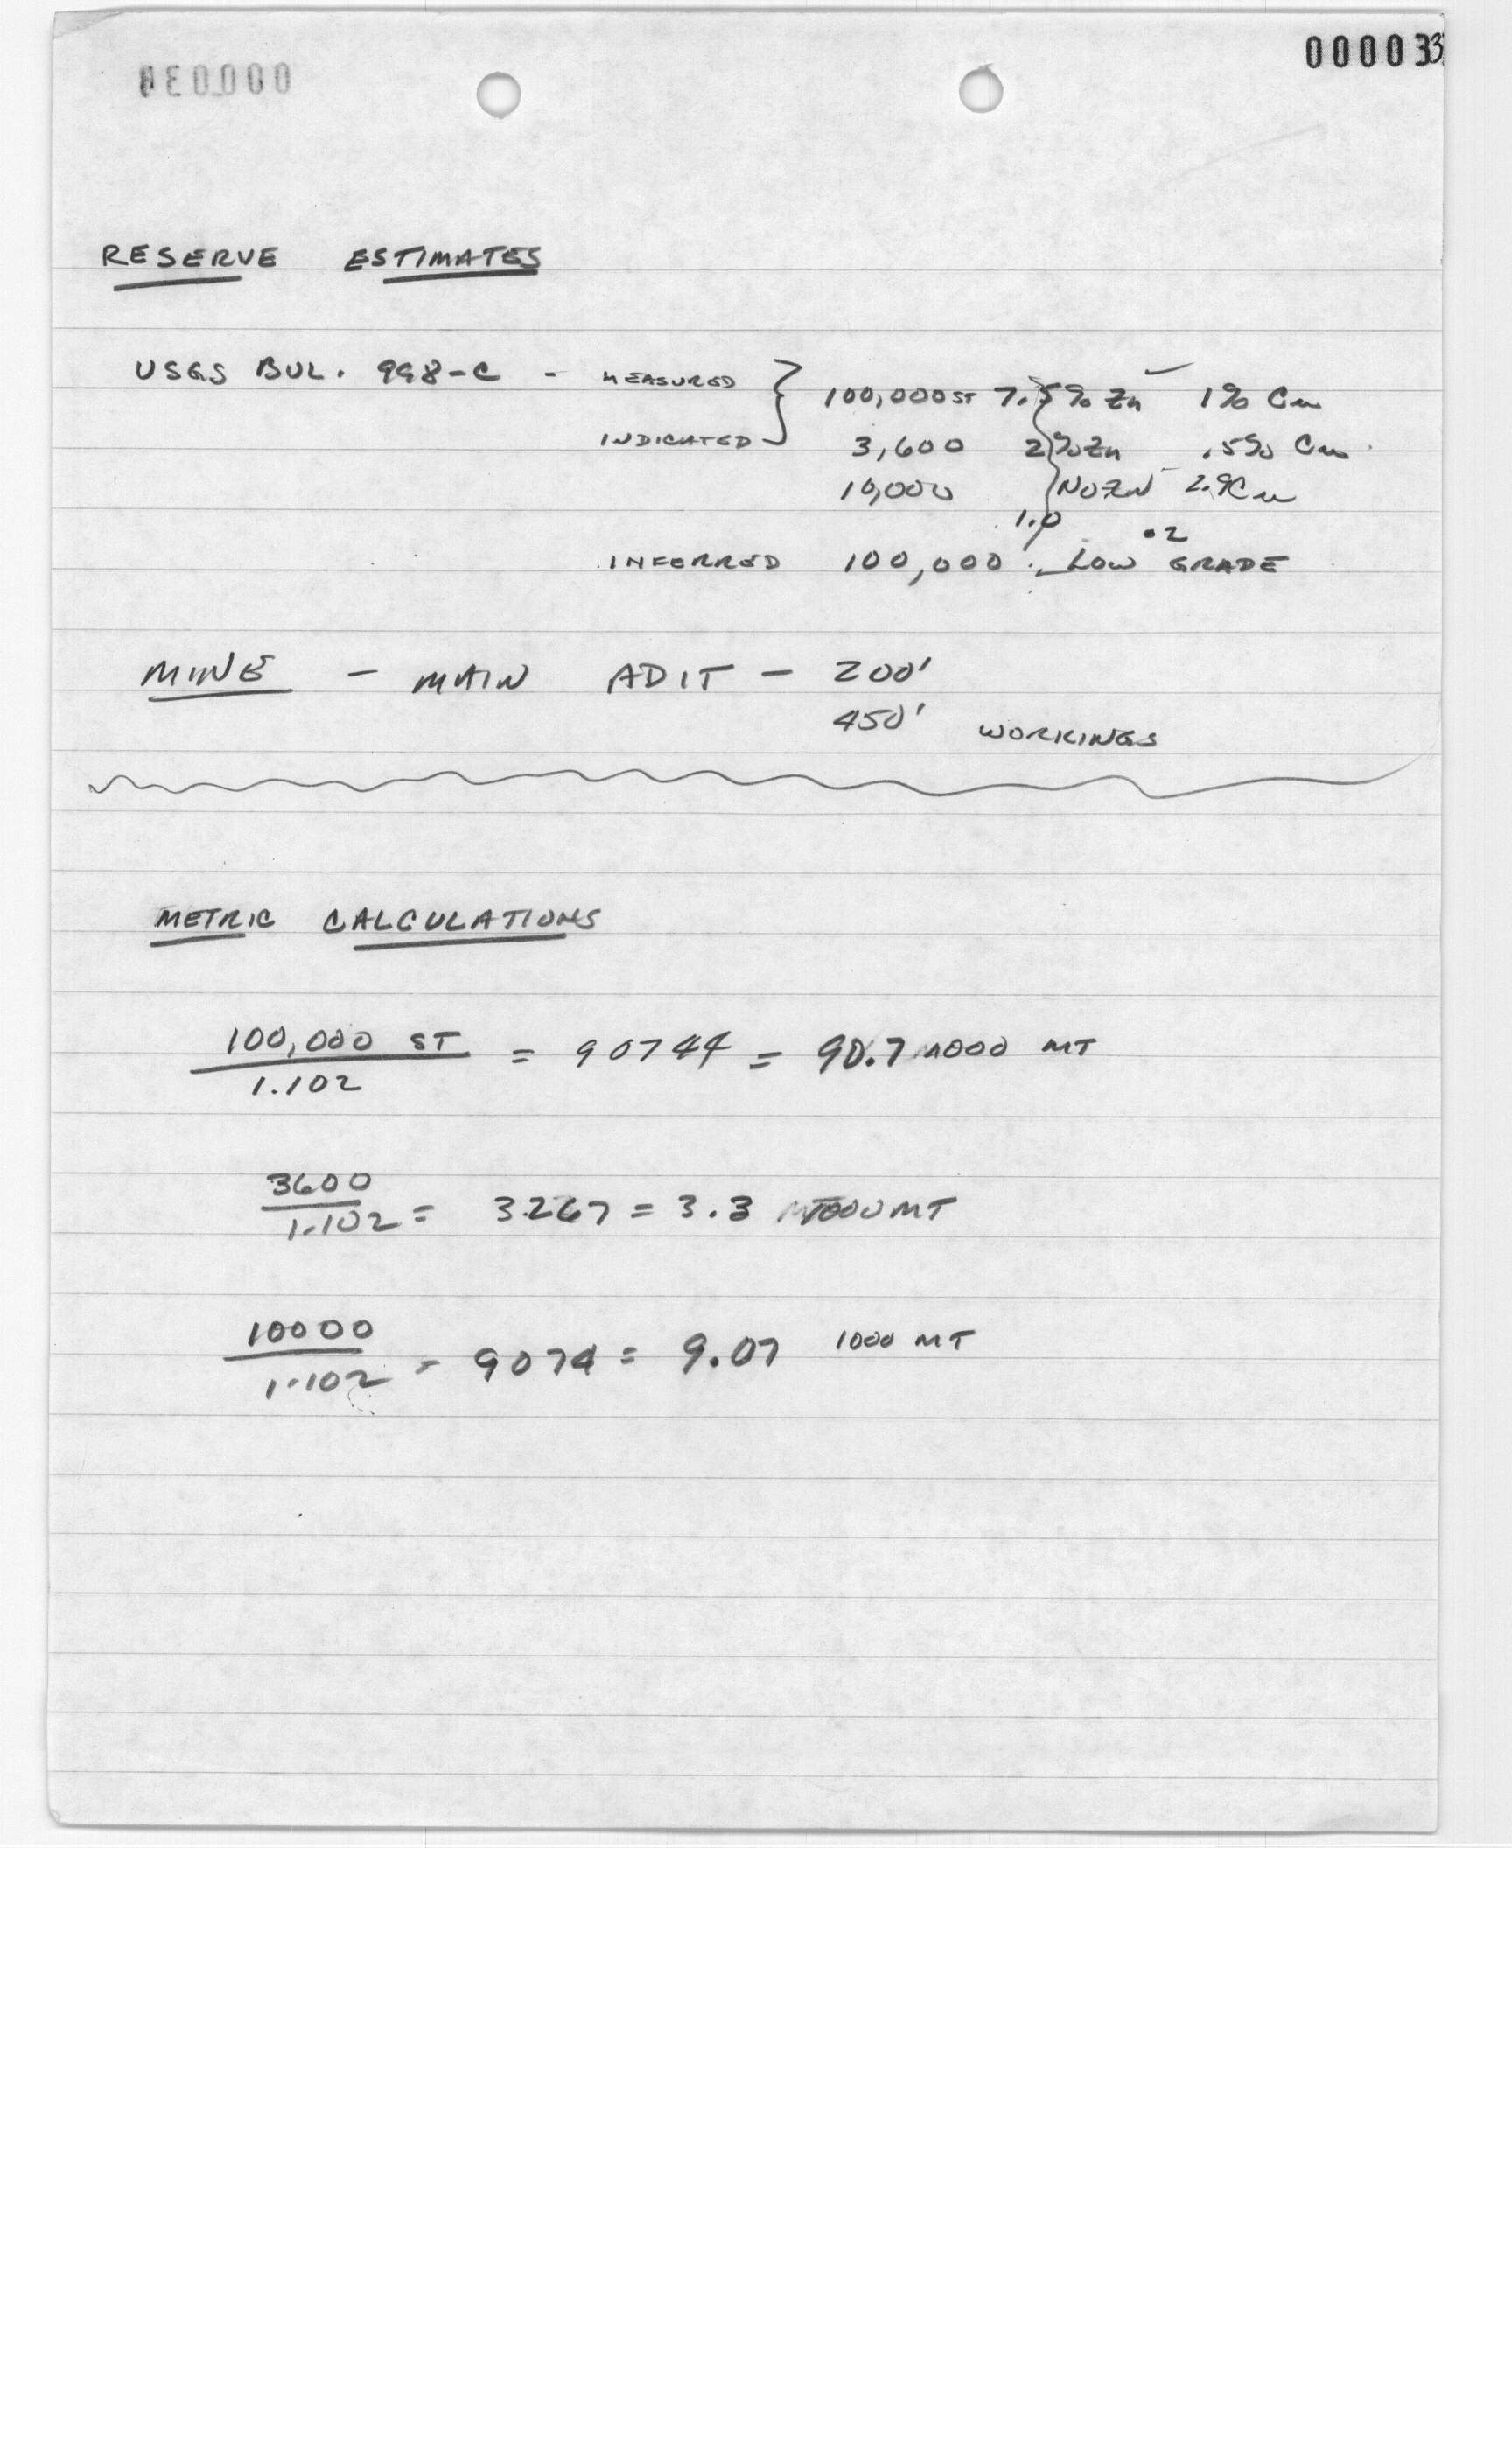 000033
RESERVE ESTIMATES
USGS BUL. 998-C - MEASURED } 100,000 ST 7.5% Zn 1% Cu
INDICATED 3,600 2% Zn .5% Cu
10,000 NO ZN 2.9 Cu
1.0 .2
INFERRED 100,000 LOW GRADE
MINE - MAIN ADIT - 200'
450' WORKINGS
METRIC CALCULATIONS
100,000 ST
= 90744 = 90.7 1000 MT
1.102
3600
1.102 = 3267 = 3.3 1000 MT
10000
1.102 = 9074 = 9.07 1000 MT